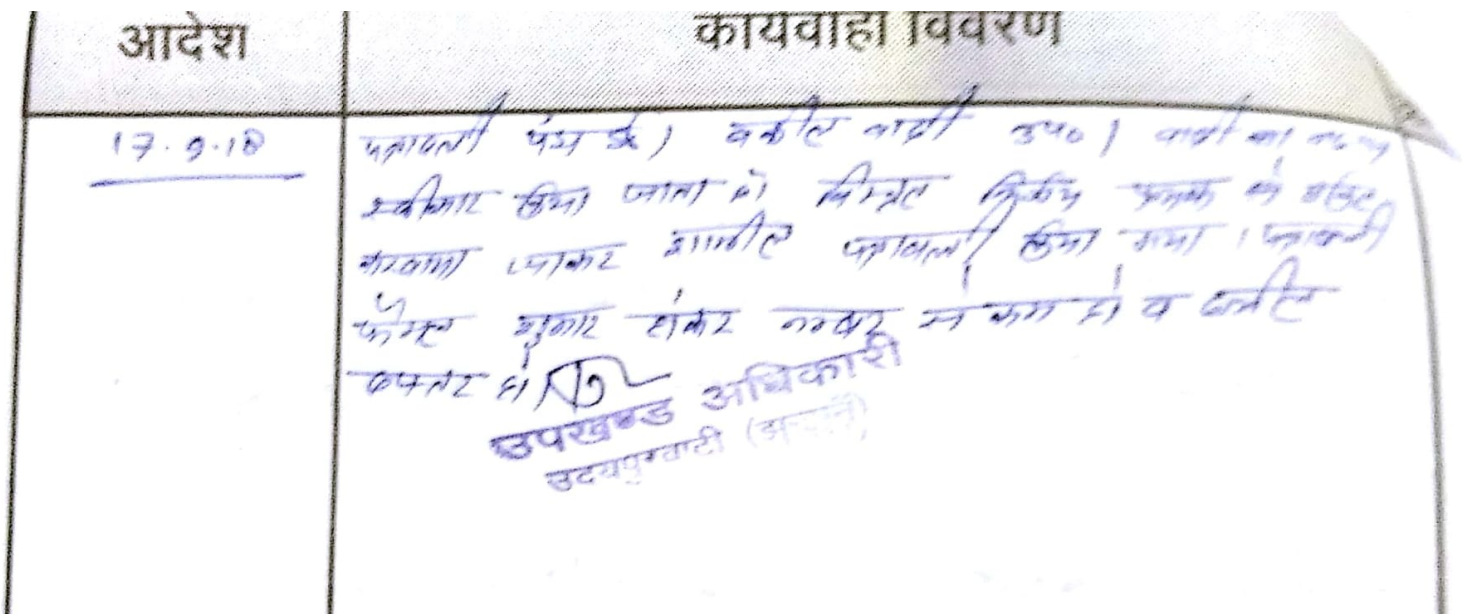 आदेश कार्यवाही विवरण
17.9.18 पत्रावली पेश है। वकील वादी उप०। वादी का
स्वीकार किया जाता है। विस्तृत निर्णय पृथक से
करवाया जाकर शामील पत्रावली किया गया। पत्रावली
फैसल शुमार होकर नम्बर से कम हो व दाखिल
दफ्तर हो।
उपखण्ड अधिकारी
उदयपुरवाटी